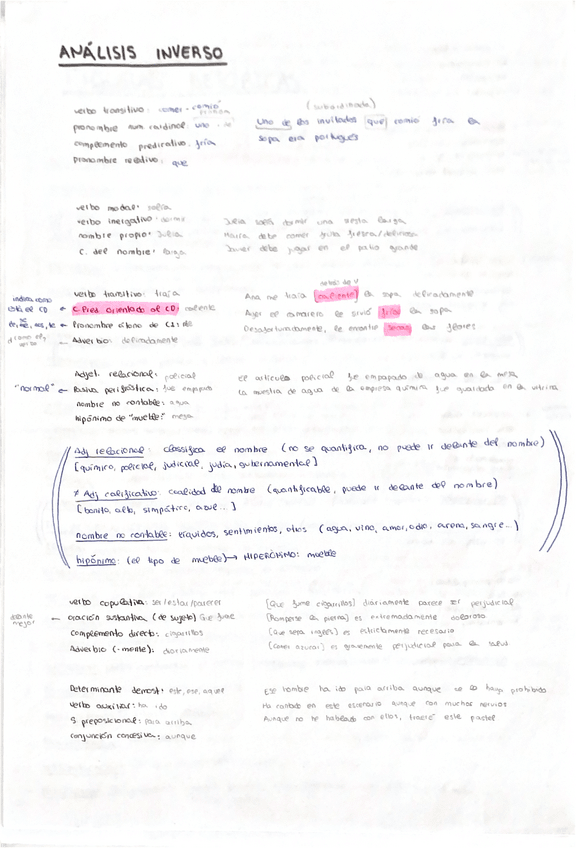 ANÁLISIS INVERSO
(subordinada)
verbo transitivo: comer - comió
pronombre num cardinal: uno
Uno de los invitados que comió fría la
complemento predicativo: fría
sopa era portugués
Pronombre relativo: que
verbo modal: solía
verbo inergativo: dormir
Julia solía dormir una siesta larga
nombre propio: Julia
María debe comer fruta fresca/deliciosa
C. del nombre: larga
Javier debe jugar en el patio grande
verbo transitivo: traía
Ana me traía caliente la sopa deliradamente
indica como está el CD ← C. Pred. orientado al CD: caliente
Ayer el camarero le sirvió fría la sopa
← Pronombre átono de CI: me
Desafortunadamente, le envió secas las flores
← Adverbio: deliradamente
Adjet. relacional: policial
El artículo policial fue empapado de agua en la mesa
"normal" ← Pasiva perifrástica: fue empapado
la muestra de agua de la empresa química fue guardada en la vitrina
nombre no contable: agua
hipónimo de "mueble": mesa
Adj relacional: classifica el nombre (no se quantifica, no puede ir delante del nombre)
[químico, policial, judicial, judía, gubernamental]
≠ Adj calificativo: cualidad del nombre (quantificable, puede ir delante del nombre)
[bonita, alto, simpático, azul...]
nombre no contable: líquidos, sentimientos, otros (agua, vino, amor, odio, arena, sangre...)
hipónimo: (el tipo de mueble) → HIPERÓNIMO: mueble
verbo copulativo: ser/estar/parecer
[Que fume cigarrillos] diariamente parece ser perjudicial
delante mejor ← oración sustantiva (de sujeto): Que fume
[Romperse la pierna] es extremadamente doloroso
complemento directo: cigarrillos
[Que sepa inglés] es estrictamente necesario
Adverbio (-mente): diariamente
[Comer azúcar] es gravemente perjudicial para la salud
Determinante demost: este, ese, aquel
Ese hombre ha ido para arriba aunque se lo haya prohibido
verbo auxiliar: ha ido
Ha cantado en este escenario aunque con muchos nervios
S. preposicional: para arriba
Aunque no he hablado con ellos, traeré este pastel
conjunción concesiva: aunque